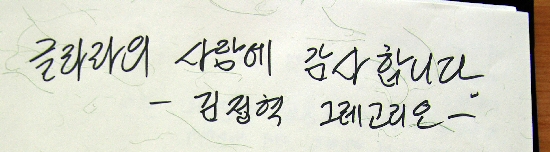 글라라의 사랑에 감사합니다.
- 김접혁 그레고리오 -